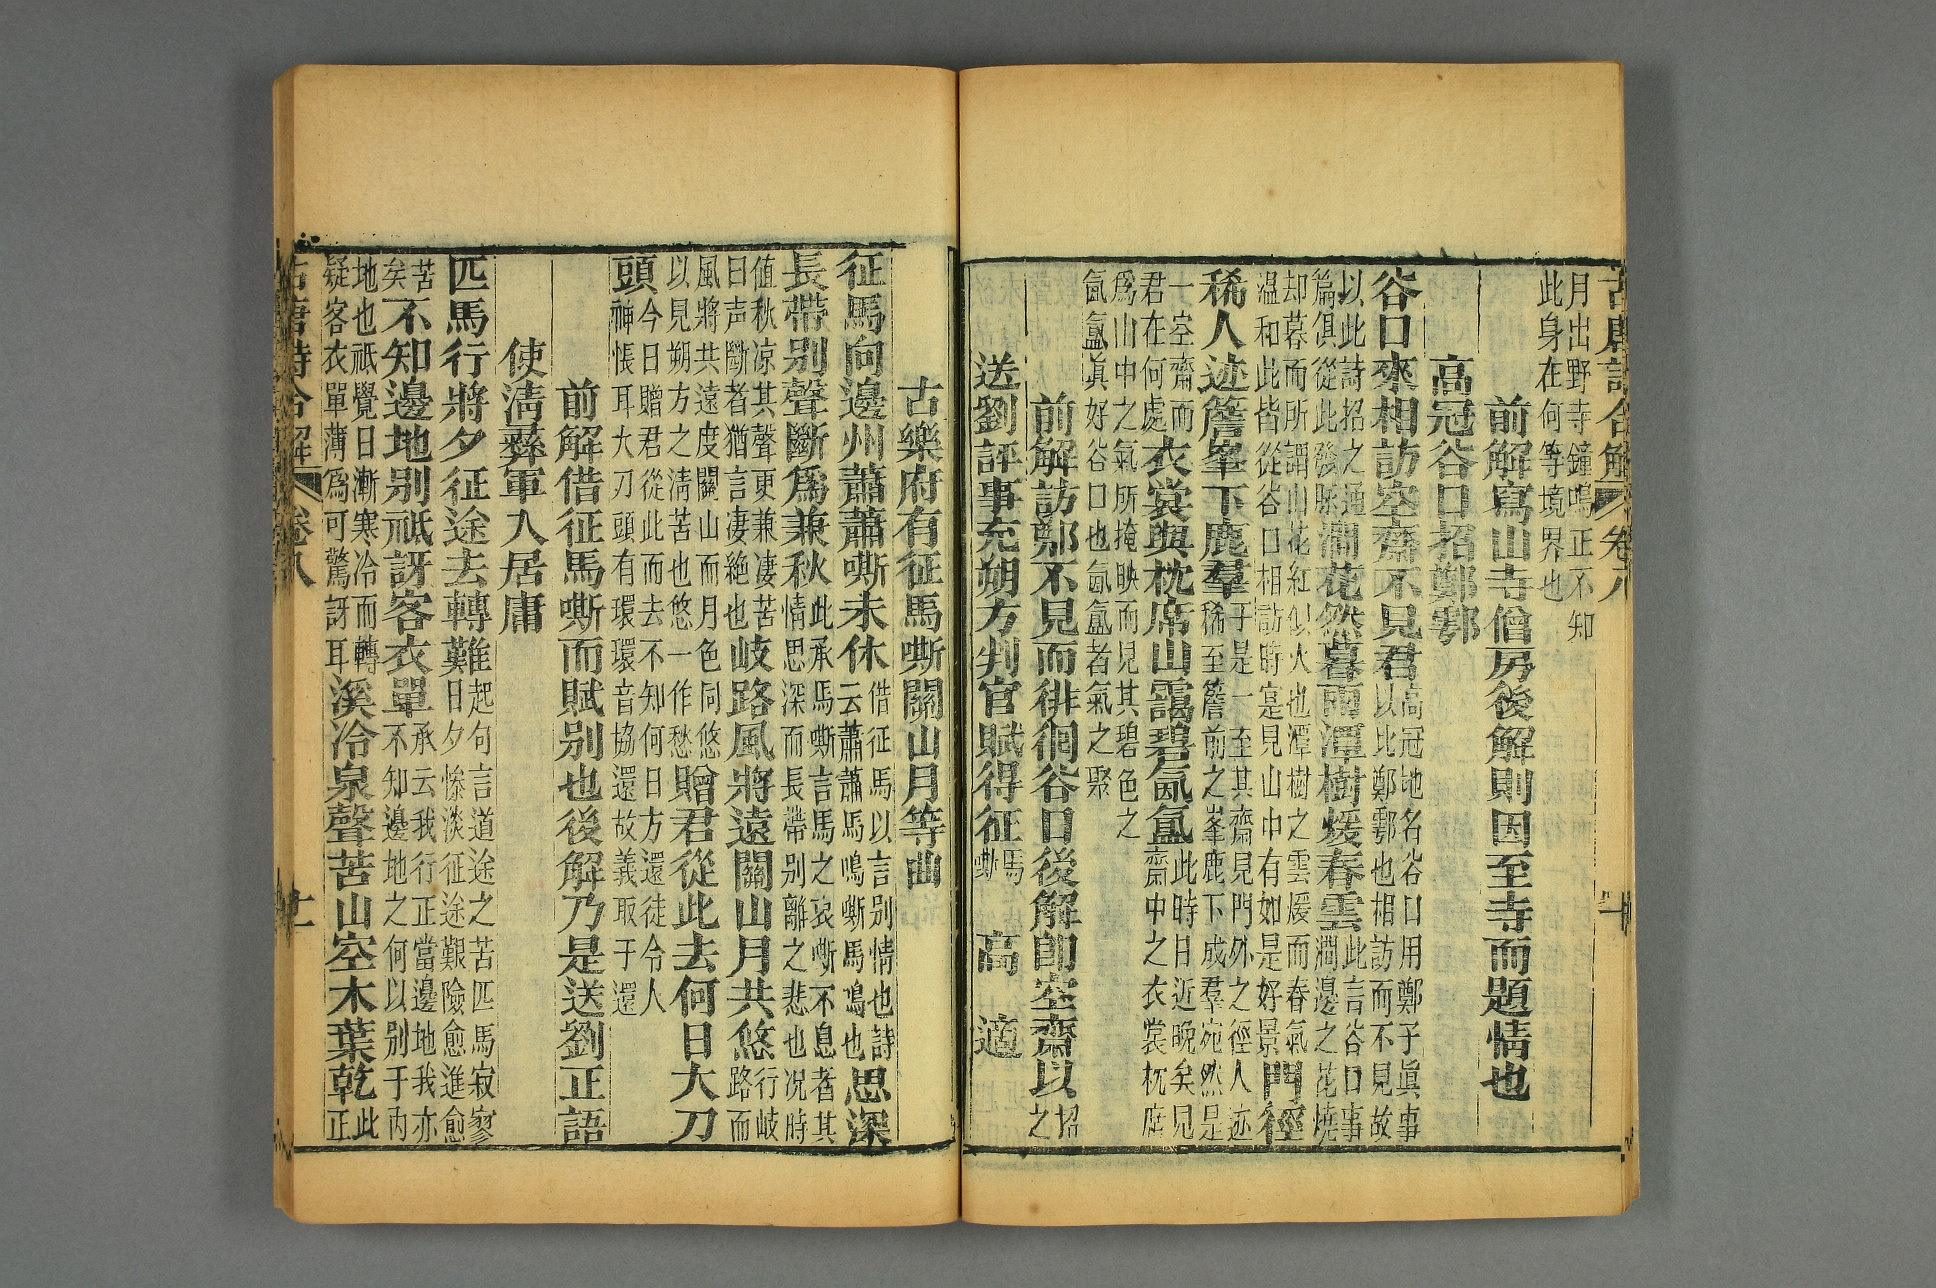 古唐詩合解
卷八
十
月出野寺鐘鳴正不知
此身在何等境界也
前解寫山寺僧房後解則因至寺而題情也
高冠谷口招鄭鄠
谷口來相訪空齋不見君高冠地名谷口用鄭子真事
以此鄭鄠也相訪而不見故
以此詩招之通
篇俱從此發脉澗花然暮雨潭樹煖春雲此言谷口事
澗邊之花燒
却暮而所謂山花紅似火也潭樹之雲煖而春氣
溫和此皆從谷口相訪時寔見山中有如是好景門徑
稀人迹簷峯下鹿羣于是一至其齋見門外之徑人迹
稀至簷前之峯鹿下成羣宛然是
一空齋而
君在何處衣裳與枕席山靄碧氤氳此時日近晚矣見
齋中之衣裳枕席
爲山中之氣所掩映而見其碧色之
氤氳眞好谷口也氤氳者氣之聚
前解訪鄭不見而徘徊谷口後解即空齋以招
之
送劉評事充朔方判官賦得征馬
嘶 高適
古樂府有征馬嘶關山月等曲
征馬向邊州蕭蕭嘶未休借征馬以言别情也詩
云蕭蕭馬鳴嘶馬鳴也思深
長帶别聲斷爲兼秋此承馬嘶言馬之哀嘶不息者其
情思深而長帶别離之悲也况時
值秋凉其聲更兼凄苦
曰声斷者猶言凄絶也岐路風將遠關山月共悠行岐
路而
風將共遠度關山而月色同悠
以見朔方之清苦也悠一作愁贈君從此去何日大刀
頭今日贈君從此而去不知何日方還徒令人
神悵耳大刀頭有環環音協還故義取于還
前解借征馬嘶而賦别也後解乃是送劉正語
使淸彝軍入居庸
匹馬行將夕征途去轉難起句言道途之苦匹馬寂寥
日夕慘淡征途艱險愈進愈
苦
矣不知邊地别祗訝客衣單此承云我行正當邊地我亦
不知邊地之何以别于内
地也祗覺日漸寒冷而轉
疑客衣單薄爲可驚訝耳溪冷泉聲苦山空木葉乾此
正
古唐詩合解
卷八
十一